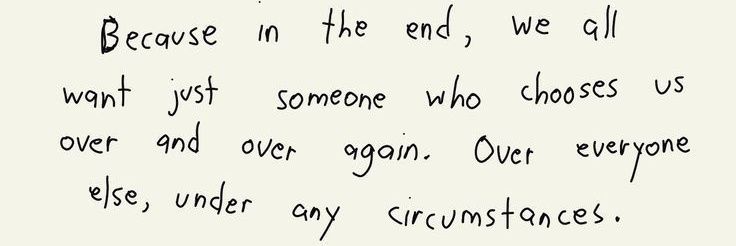 Because in the end, we all
want just someone who chooses us
over and over again. Over everyone
else, under any circumstances.